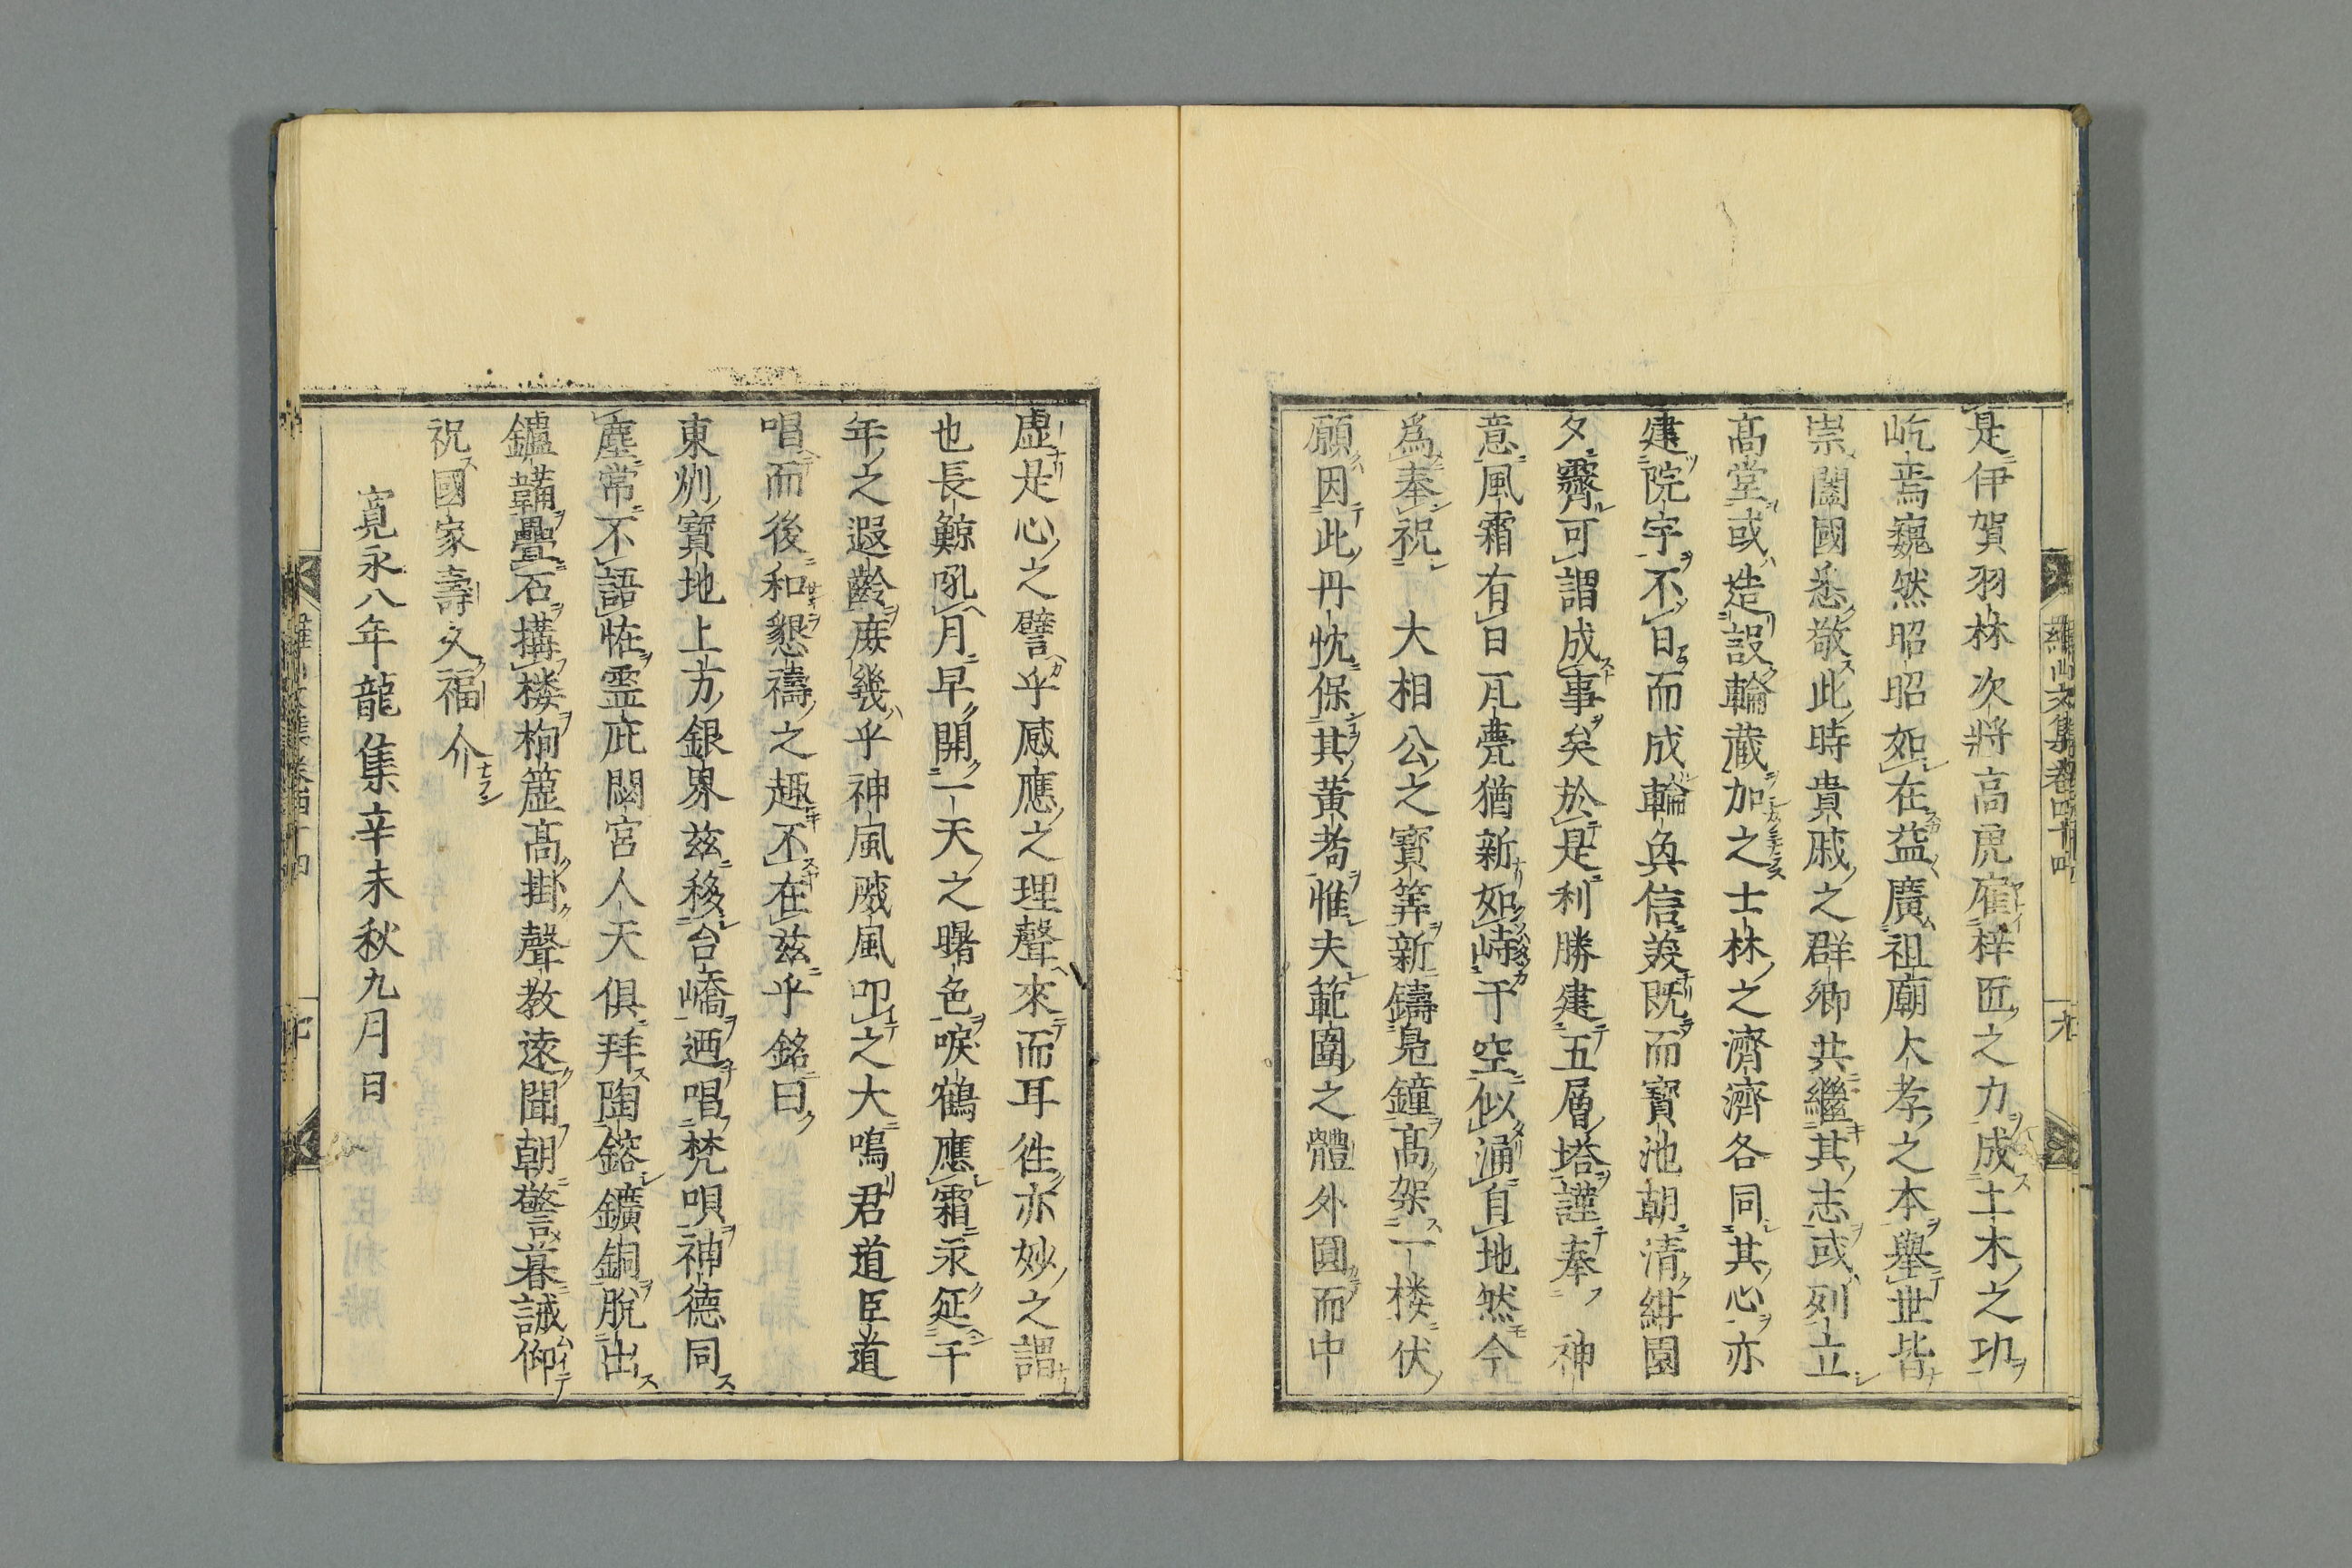 是伊賀羽林次將高虎雇梓匠之力成土木之功
屹焉巍然昭昭如在益廣祖廟大孝之本舉世皆
崇闔國悉敬此時貴戚之群卿共繼其志或列立
髙堂或造設輪蔵加之士林之濟濟各同其心亦
建院宇不日而成輪奐信羙既而寳池朝清紺園
夕霽可謂成事矣於是利勝建五層塔謹奉神
意風霜有日瓦甍猶新如峙于空似涌自地然今
爲奉祝大相公之寳筭新鑄鳬鐘髙架一楼伏
願因此丹忱保其黄耈惟夫範圍之體外圓而中
虚是心之譬乎感應之理聲來而耳徃亦妙之謂
也長鯨吼月早開一天之曙色唳鶴應霜永延千
年之遐齡庻幾乎神風颺風叩之大鳴君道臣道
唱而後和懇禱之趣不在茲乎銘曰
東州寳地上方銀界茲移台嶠迺唱梵唄神德同
塵常不語恠霊庇閟宮人天俱拜陶鎔鑛銅脱出
鑪韛疊石搆楼栒簴髙掛聲教遠聞朝警暮誡仰
祝國家壽久福介
寛永八年龍集辛未秋九月日
羅山文集卷四十四
九